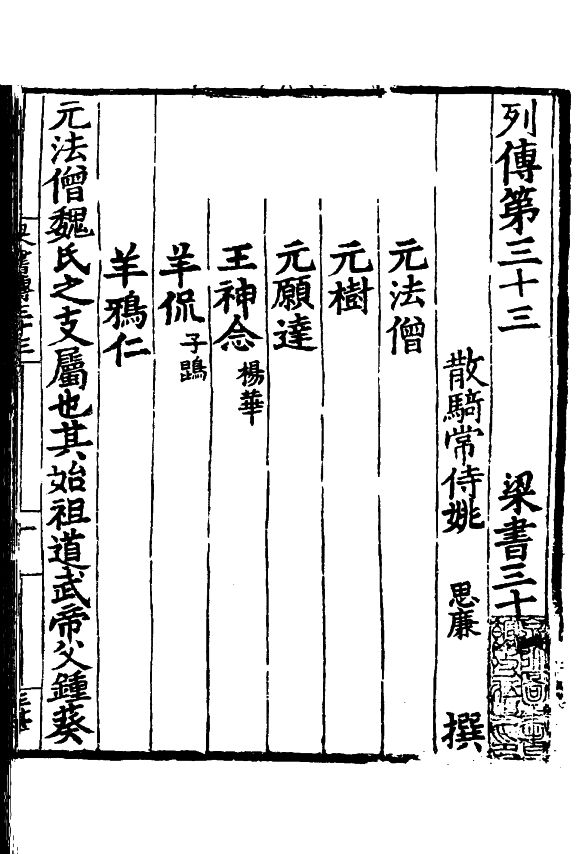 列傳第三十三 梁書三十
散騎常侍姚 思廉 撰
元法僧
元樹
元願達
王神念 楊華
羊侃 子鵾
羊鴉仁
元法僧魏氏之支屬也其始祖道武帝父鍾葵